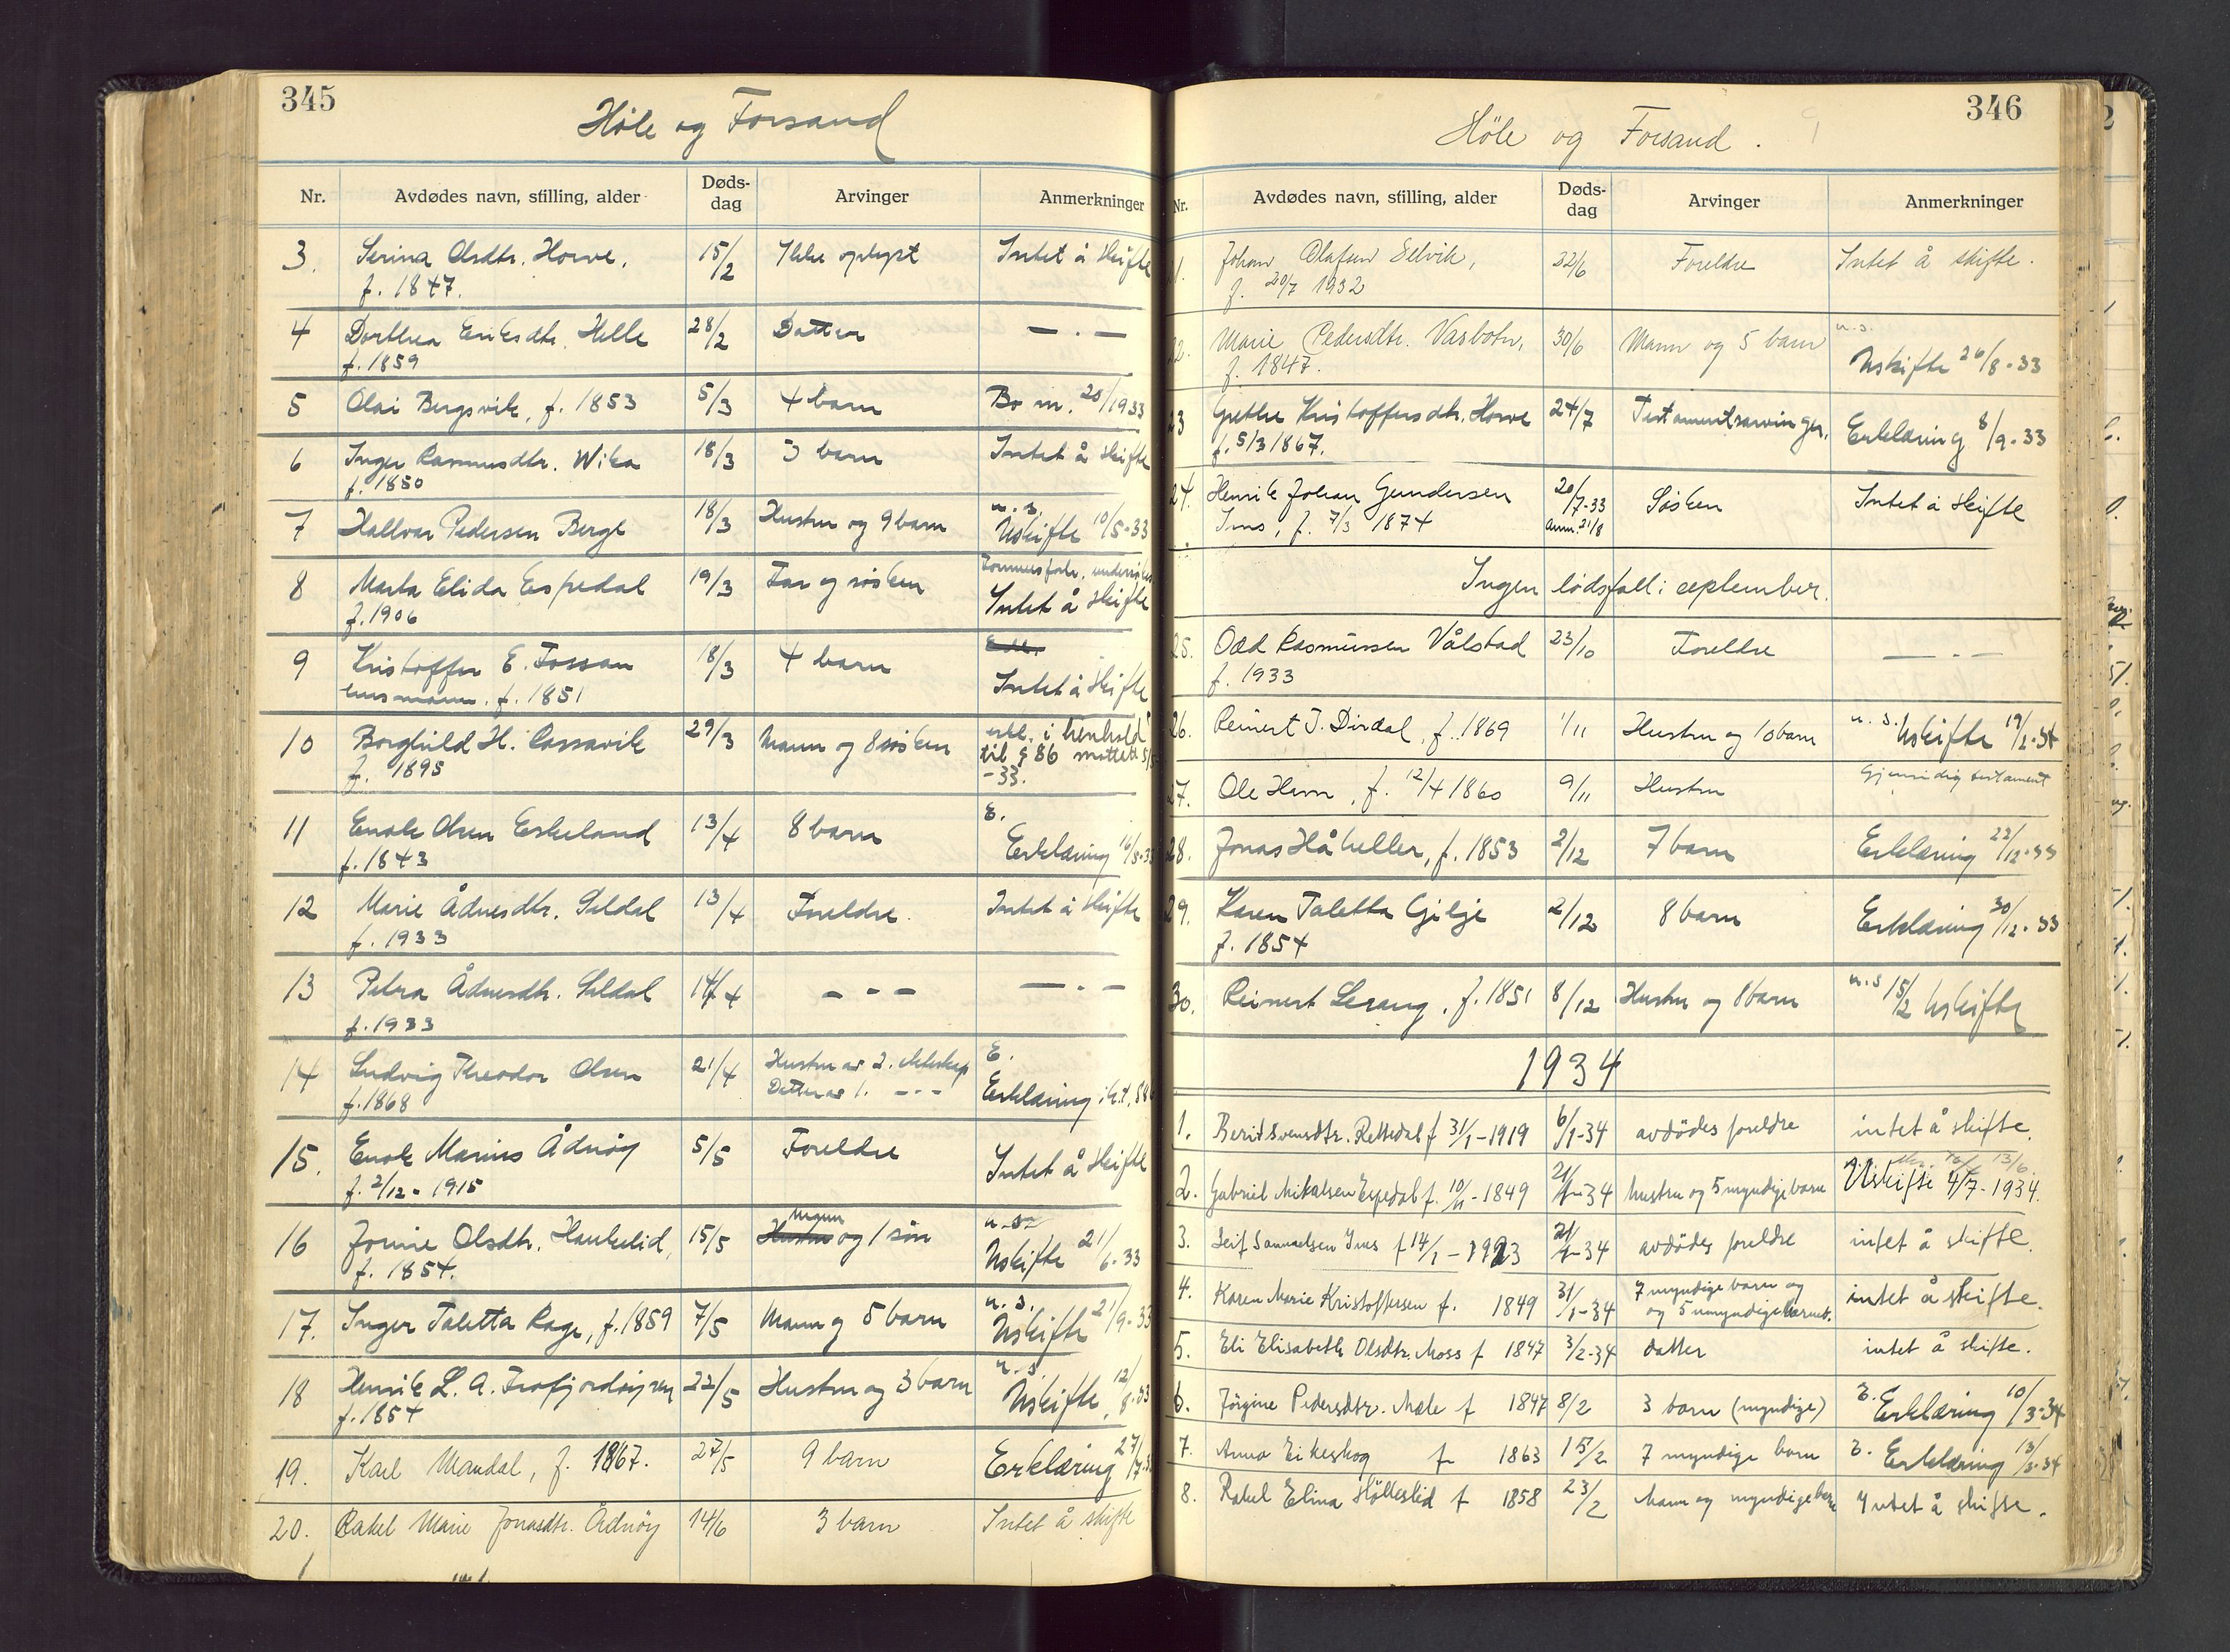 345
Høle og Forsand
Nr. Avdødes navn, stilling, alder Døds-dag Arvinger Anmerkninger
3. Serina Olsdtr. Horve, 15/2 Ikke oplyst Intet å skifte
f. 1847.
4 Dorthea Eriksdtr. Helle 28/2 Datter — . —
f. 1859
5 Olai Bergsvik, f. 1853 5/3 4 barn Bo m. 20/1933
6 Inger Rasmusdtr. Wika 18/3 3 barn Intet å skifte
f. 1850
7 Hallvar Pedersen Berge 18/3 Hustru og 9 barn u.s.
Uskifte 10/5-33
8 Marta Elida Espedal 19/3 Far og søsken
f. 1906 Intet å skifte
9 Kristoffer E. Fossan 18/3 4 barn
f. 1851 Intet å skifte
10 Borghild H. Rossavik 29/3 Mann og 8 søsken erkl. i henhold
f. 1895 til § 86 mottatt 5/5
-33.
11 Enok Olsen Eskeland 13/4 8 barn E.
f. 1843 Erklæring 16/5-33
12 Marie Ådnesdtr. Seldal 13/4 Foreldre Intet å skifte
f. 1933
13 Petra Ådnesdtr. Seldal 14/4 — - — — . —
f. 1933
14 Ludvig Theodor Olsen 21/4 Hustru av 2. ekteskap E.
f. 1868 Datter av 1. - - - Erklæring
15. Enok Marius Ådnøy 5/5 Foreldre Intet å skifte
f. 2/12 - 1915
16 Jorine Olsdtr. Haukelid, 15/5 Hustru mann og 1 søn u.s.
f. 1854. Uskifte 21/6-33
17. Inger Taletta Rage, f. 1859 7/5 Mann og 5 barn u.s.
Uskifte 21/9-33
18 Henrik L. A. 22/5 Hustru og 3 barn u.s.
f. 1854 Uskifte 12/8-33
19. Karl Mandal, f. 1867. 27/5 9 barn Erklæring 27/7-33
20. Rakel Marie Jonasdtr. Ådnøy 14/6 3 barn Intet å skifte
346
Höle og Forsand.
Nr. Avdødes navn, stilling, alder Døds-dag Arvinger Anmerkninger
21. Johan Olafsen Selvik, 22/6 Foreldre Intet å skifte.
f. 20/7 1932
22. Marie Pedersdtr. Vasbotn, 30/6 Mann og 5 barn u.s.
f. 1847. Uskifte 26/8-33
23 Grethe Kristoffersdtr. Horve 24/7 Testamentsarvinger. Erklæring 8/9-33
f. 5/3 1867.
24. Henrik Johan Gundersen 20/7-33 Søsken Intet å skifte
Ims, f. 7/3 1874 anm. 21/8
Ingen dødsfall i september.
25. Odd Rasmussen Vålstad 23/10 Foreldre — . —
f. 1933
26. Reinert T. Dirdal, f. 1869 1/11 Hustru og 10 barn u.s. Uskifte 19/2-34
27. Ole Hem, f. 12/4 1860 9/11 Hustru Gjensidig testament
28. Jonas Håheller, f. 1853 2/12 7 barn Erklæring 22/12-33
29. Karen Taletta Gilje 2/12 8 barn Erklæring 30/12-33
f. 1854
30. Reinert Lerang, f. 1851 8/12 Hustru og 8 barn u.s 15/2 Uskifte
1934
1. Berit Svensdtr. Rettedal f 31/1-1919 6/1-34 avdödes foreldre intet å skifte.
2. Gabriel Mikalsen Espedal f. 10/11-1849 21/1-34 hustru og 5 myndige barn Uskifte 4/7-1934.
3. Leif Samuelsen Ims f 14/1-1923 21/1-34 avdödes foreldre intet å skifte.
4. Karen Marie Kristoffersen f. 1849 31/1-34 7 myndige barn og intet å skifte.
og 5 umyndige barneb.
5. Eli Elisabeth Olsdtr. Moss f 1847 3/2-34 datter intet å skifte.
6. Jörgine Pedersdtr. Mæle f 1847 8/2 3 barn (myndige) E. Erklæring 10/3-34
7. Anna Eikeskog f 1863 15/2 7 myndige barn E. Erklæring 13/3-34
8. Rakel Elina Hölleslid f 1858 23/2 Mann og myndige barn Intet å skifte.